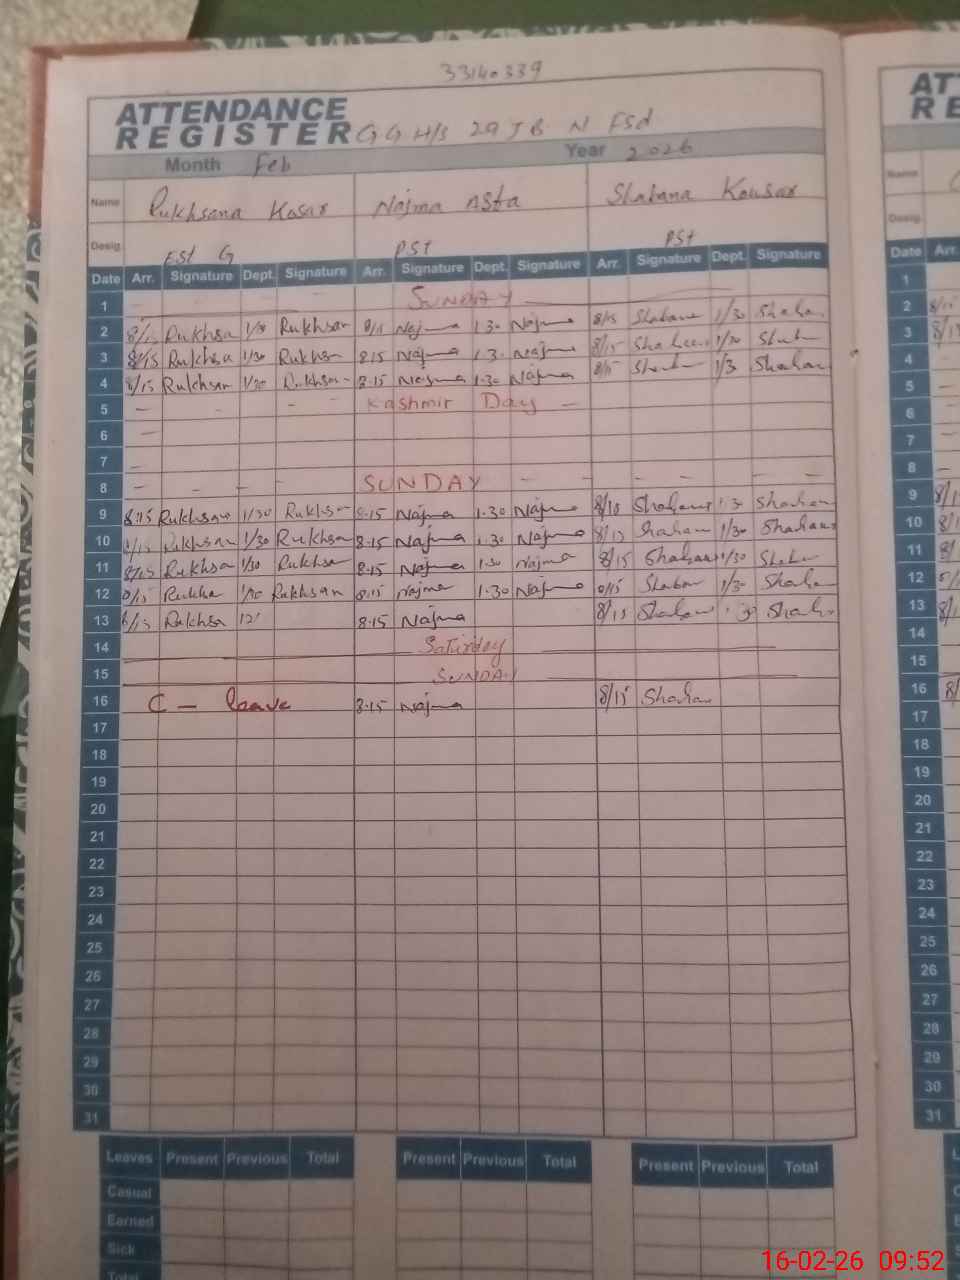 33140339
ATTENDANCE AT
REGISTER GGH/S 29 JB N Fsd RE
Month Feb Year 2026
Name Rukhsana Kosar Najma Asfa Shabana Kousar Name
Desig. Est G PST PST Desig.
Date Arr. Signature Dept. Signature Arr. Signature Dept. Signature Arr. Signature Dept. Signature Date Arr.
1 — — SUNDAY — 1
2 8/15 Rukhsa 1/30 Rukhsan 8/15 Najma 1.30 Najma 8/15 Shabana 1/30 Shaha 2 8/15
3 8/15 Rukhsa 1/30 Rukhsn 8.15 Najma 1.3. Najma 8/15 1/30 3 8/15
4 8/15 Rukhsan 1/30 Rukhsan 8.15 Najma 1.30 Najma 8/15 1/3 Shahan 4 —
5 — — — — Kashmir Day — 5 —
6 — 6
7 — 7
8 — — — — SUNDAY — — — — — — 8 —
9 8:15 Rukhsan 1/30 Rukhsan 8.15 Najma 1.30 Najma 8/10 Shahana 1.3 Shahan 9 8/1
10 8/15 Rukhsan 1/30 Rukhsa 8.15 Najma 1.30 Najma 8/15 Shaham 1/30 Shahana 10 8/1
11 8/15 Rukhsa 1/30 Rukhsa 8.15 Najma 1.30 Najma 8/15 Shahan 1/30 11 8/
12 8/15 Rukha 1/30 Rukhsan 8.15 Najma 1.30 Najma 8/15 Shabar 1/30 Shaha 12
13 8/15 Rukhsa 12' 8.15 Najma 8/15 Shahan 30 Shaha 13 8/1
14 Saturday 14
15 SUNDAY 15
16 C — leave 8.15 Najma 8/15 Shahan 16 8/
17 17
18 18
19 19
20 20
21 21
22 22
23 23
24 24
25 25
26 26
27 27
28 28
29 29
30 30
31 31
Leaves Present Previous Total Present Previous Total Present Previous Total L
Casual C
Earned E
Sick S
Total
16-02-26 09:52